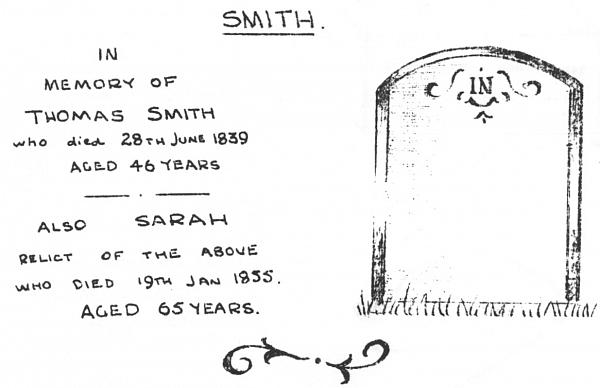 SMITH.
IN
MEMORY OF
THOMAS SMITH
who died 28TH JUNE 1839
AGED 46 YEARS
ALSO SARAH
RELICT OF THE ABOVE
WHO DIED 19TH JAN 1855.
AGED 65 YEARS.
IN